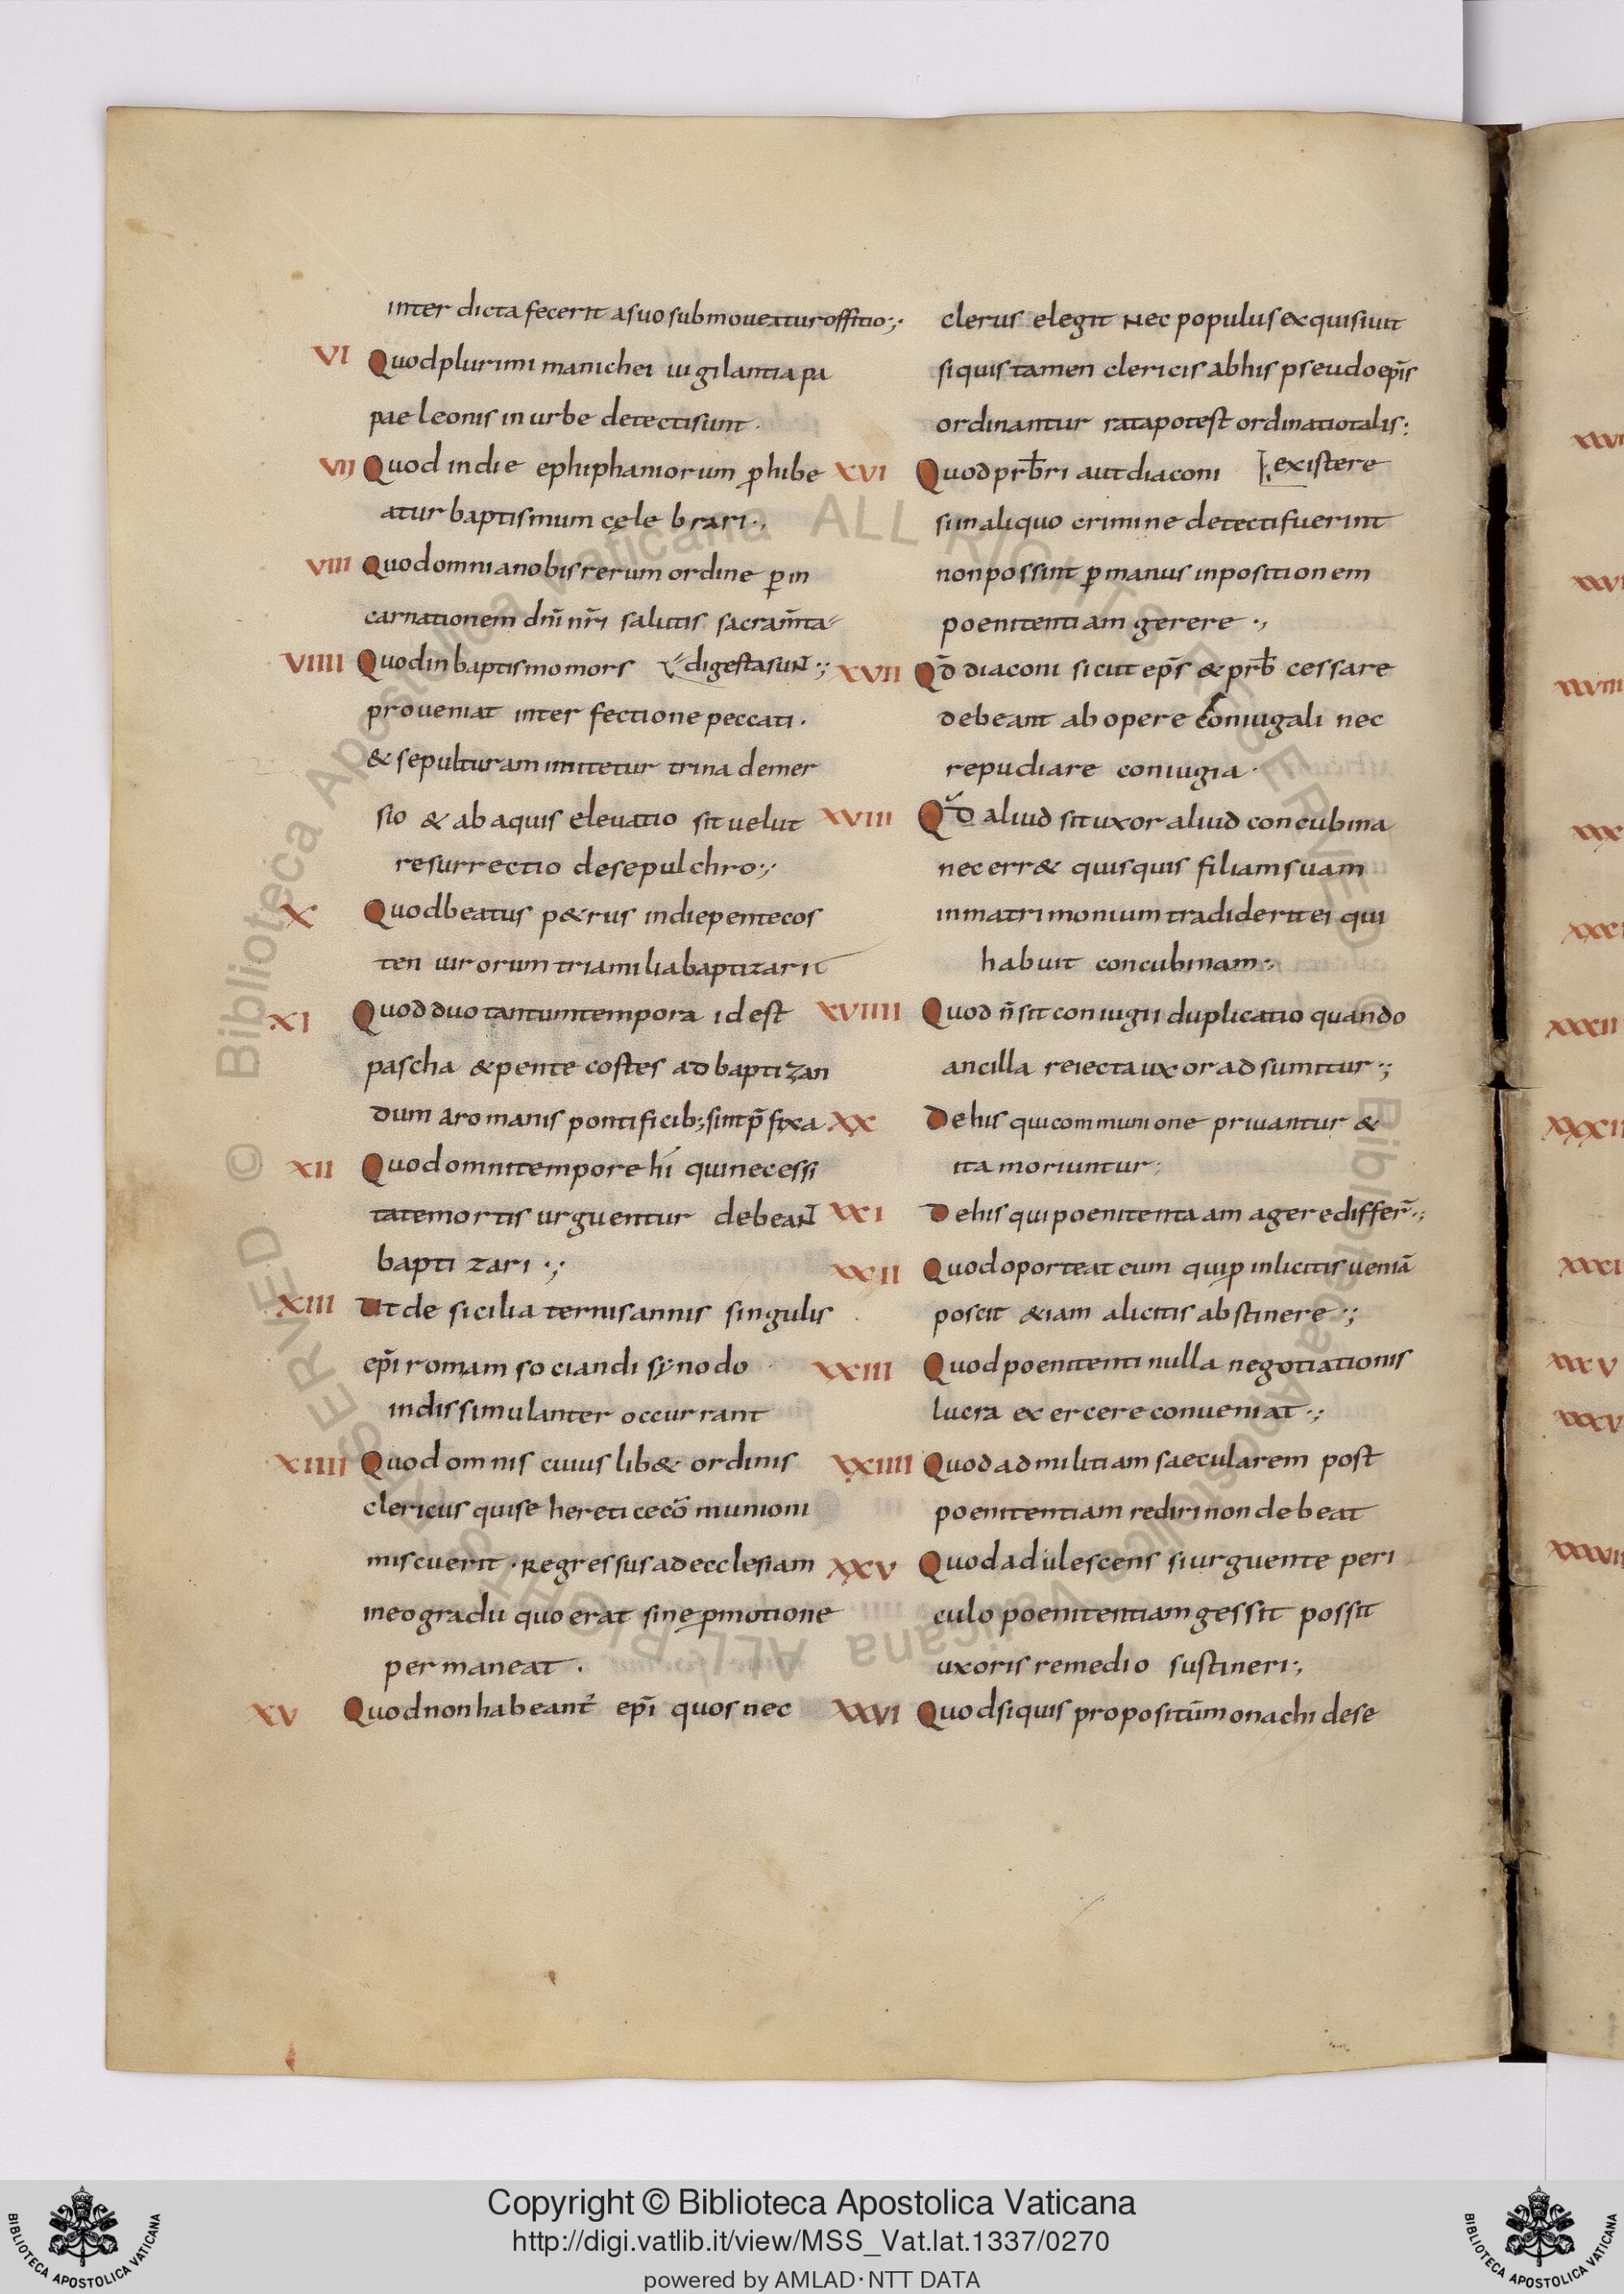 inter dicta fecerit a suo submoueatur offitio:,·
VI Quod plurimi manichei uigilantia pa
pae leonis in urbe detecti sunt .
VII Quod in die ephiphaniorum ꝓhibe
atur baptismum cęlebrari·,
VIII Quod omni a nobis rerum ordine ꝑ in
carnationem dn̄i nr̄i salutis sacram̄ta
digesta sunt ·:,
VIIII Quod in baptismo mors
proueniat interfectione peccati ·
& sepulturam imitetur trina demer
sio & ab aquis eleuatio sit uelut
resurrectio de sepulchro:,
X Quod beatus p&rus in die pentecos
ten uirorum tria milia baptizarit
XI Quod duo tantum tempora id est
pascha & pentecostes ad baptizan
dum a romanis pontificib; sint p̄fixa
XII Quod omni tempore hi qui necessi
tate mortis urguentur debeant
baptizari ·:,
XIII Ut de sicilia ternis annis singulis
ep̄i romam sociandi synodo
indissimulanter occurrant
XIIII Quod omnis cuius lib& ordinis
clericus qui se hereticę cō munioni
miscuerit · Regressus ad ecclesiam
in eo gradu quo erat sine ꝓmotione
permaneat .
XV Quod non habeant' ep̄i quos nec
clerus elegit Nec populus exquisiuit
si quis tamen clericis ab his pseudo ep̄is
ordinantur rata potest ordinatio talis:
existere
XVI Quod prb̄ri aut diaconi
si in aliquo crimine detecti fuerint
non possint ꝑ manus inpositionem
poenitentiam gerere ·,
XVII Qd̄ diaconi sicut ep̄s & prb̄ cessare
debeant ab opere coniugali nec
repudiare coniugia ·
XVIII Qd̄ aliud sit uxor aliud concubina
nec err& quisquis filiam suam
in matrimonium tradiderit ei qui
habuit concubinam:,
XVIIII Quod n̄ sit coniugii duplicatio quando
ancilla reiecta uxor adsumitur·:,
XX De his qui communione priuantur &
ita moriuntur:
XXI De his qui poenitenta am agere differ̄·:,
XXII Quod oporteat eum qui ꝓ inlicitis ueniā
poscit &iam a licitis abstinere ·:,
XXIII Quod poenitenti nulla negotiationis
lucra exercere conueniat ·:,
XXIIII Quod ad militiam saecularem post
poenitentiam rediri non debeat
XXV Quod adulescens si urguente peri
culo poenitentiam gessit possit
uxoris remedio sustineri:,
XXVI Quod si quis propositum monachi dese
Copyright © Biblioteca Apostolica Vaticana
http://digi.vatlib.it/view/MSS_Vat.lat.1337/0270
powered by AMLAD·NTT DATA
BIBLIOTECA APOSTOLICA VATICANA
BIBLIOTECA APOSTOLICA VATICANA